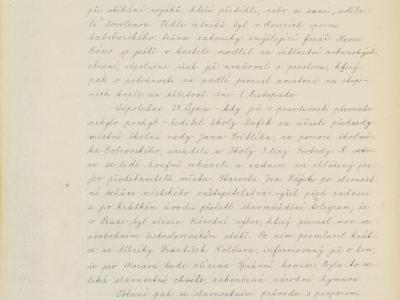 při stíhání vojáků, kteří přeběhli, nebo si sami "udělali"
dovolenou. Vedle četníků byl v Rousčích oporou
habsburského trůnu rakousky smýšlející farář Hovie
Ráno se ještě v kostele modlil za vítězství rakouských
zbraní, odpoledne však již uvažoval o proslovu, který
pak v pobožnosti za padlé pronesl smutně na stup-
ních kaple na hřbitově dne 1. listopadu.
Odpoledne 28. října - kdy již o pravdivosti převratu
nebylo pochyb - ředitel školy Dufek za účasti předsedy
místní školní rady Jana za pomoci školní-
ka Dobrovského, zasadili u školy 3 lípy Svobody. K
se lidé houfně scházeli u radnice na ohlášený pro-
jev představitelů města. Starosta Jan Hájek po slavnost-
ní schůzi městského zastupitelstva vyšel před radnici
a po krátkém úvodu přečetl shromáždění telegram, že
v Praze byl zřízen Národní výbor, který převzal moc ve
svobodném československém státě. Po něm promluvil krát-
ce za dělníky František Kolčava, informovaný již o tom,
že pro Moravu bude zřízena Správní komise. Byla to ve-
liká slavnostní chvíle, zakončená národní hymnou.
Občané pak ve slavnostním průvodu s praporem